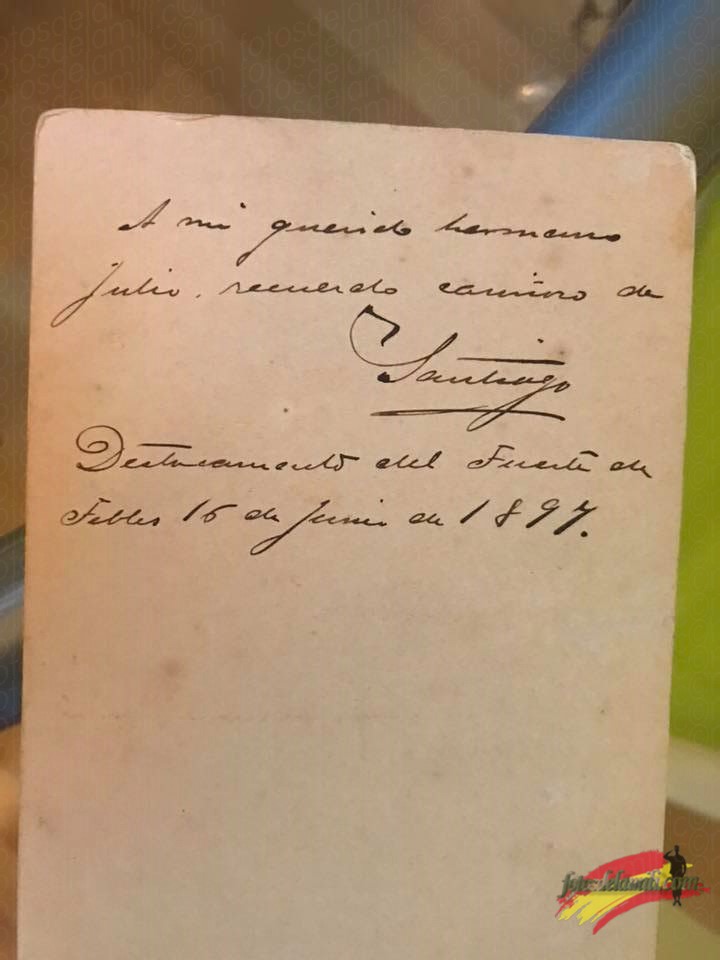 A mi querido hermano
Julio, recuerdo cariñoso de
Santiago
Destacamento del Fuerte de
Febles 16 de Junio de 1897.
fotosdelamili.com